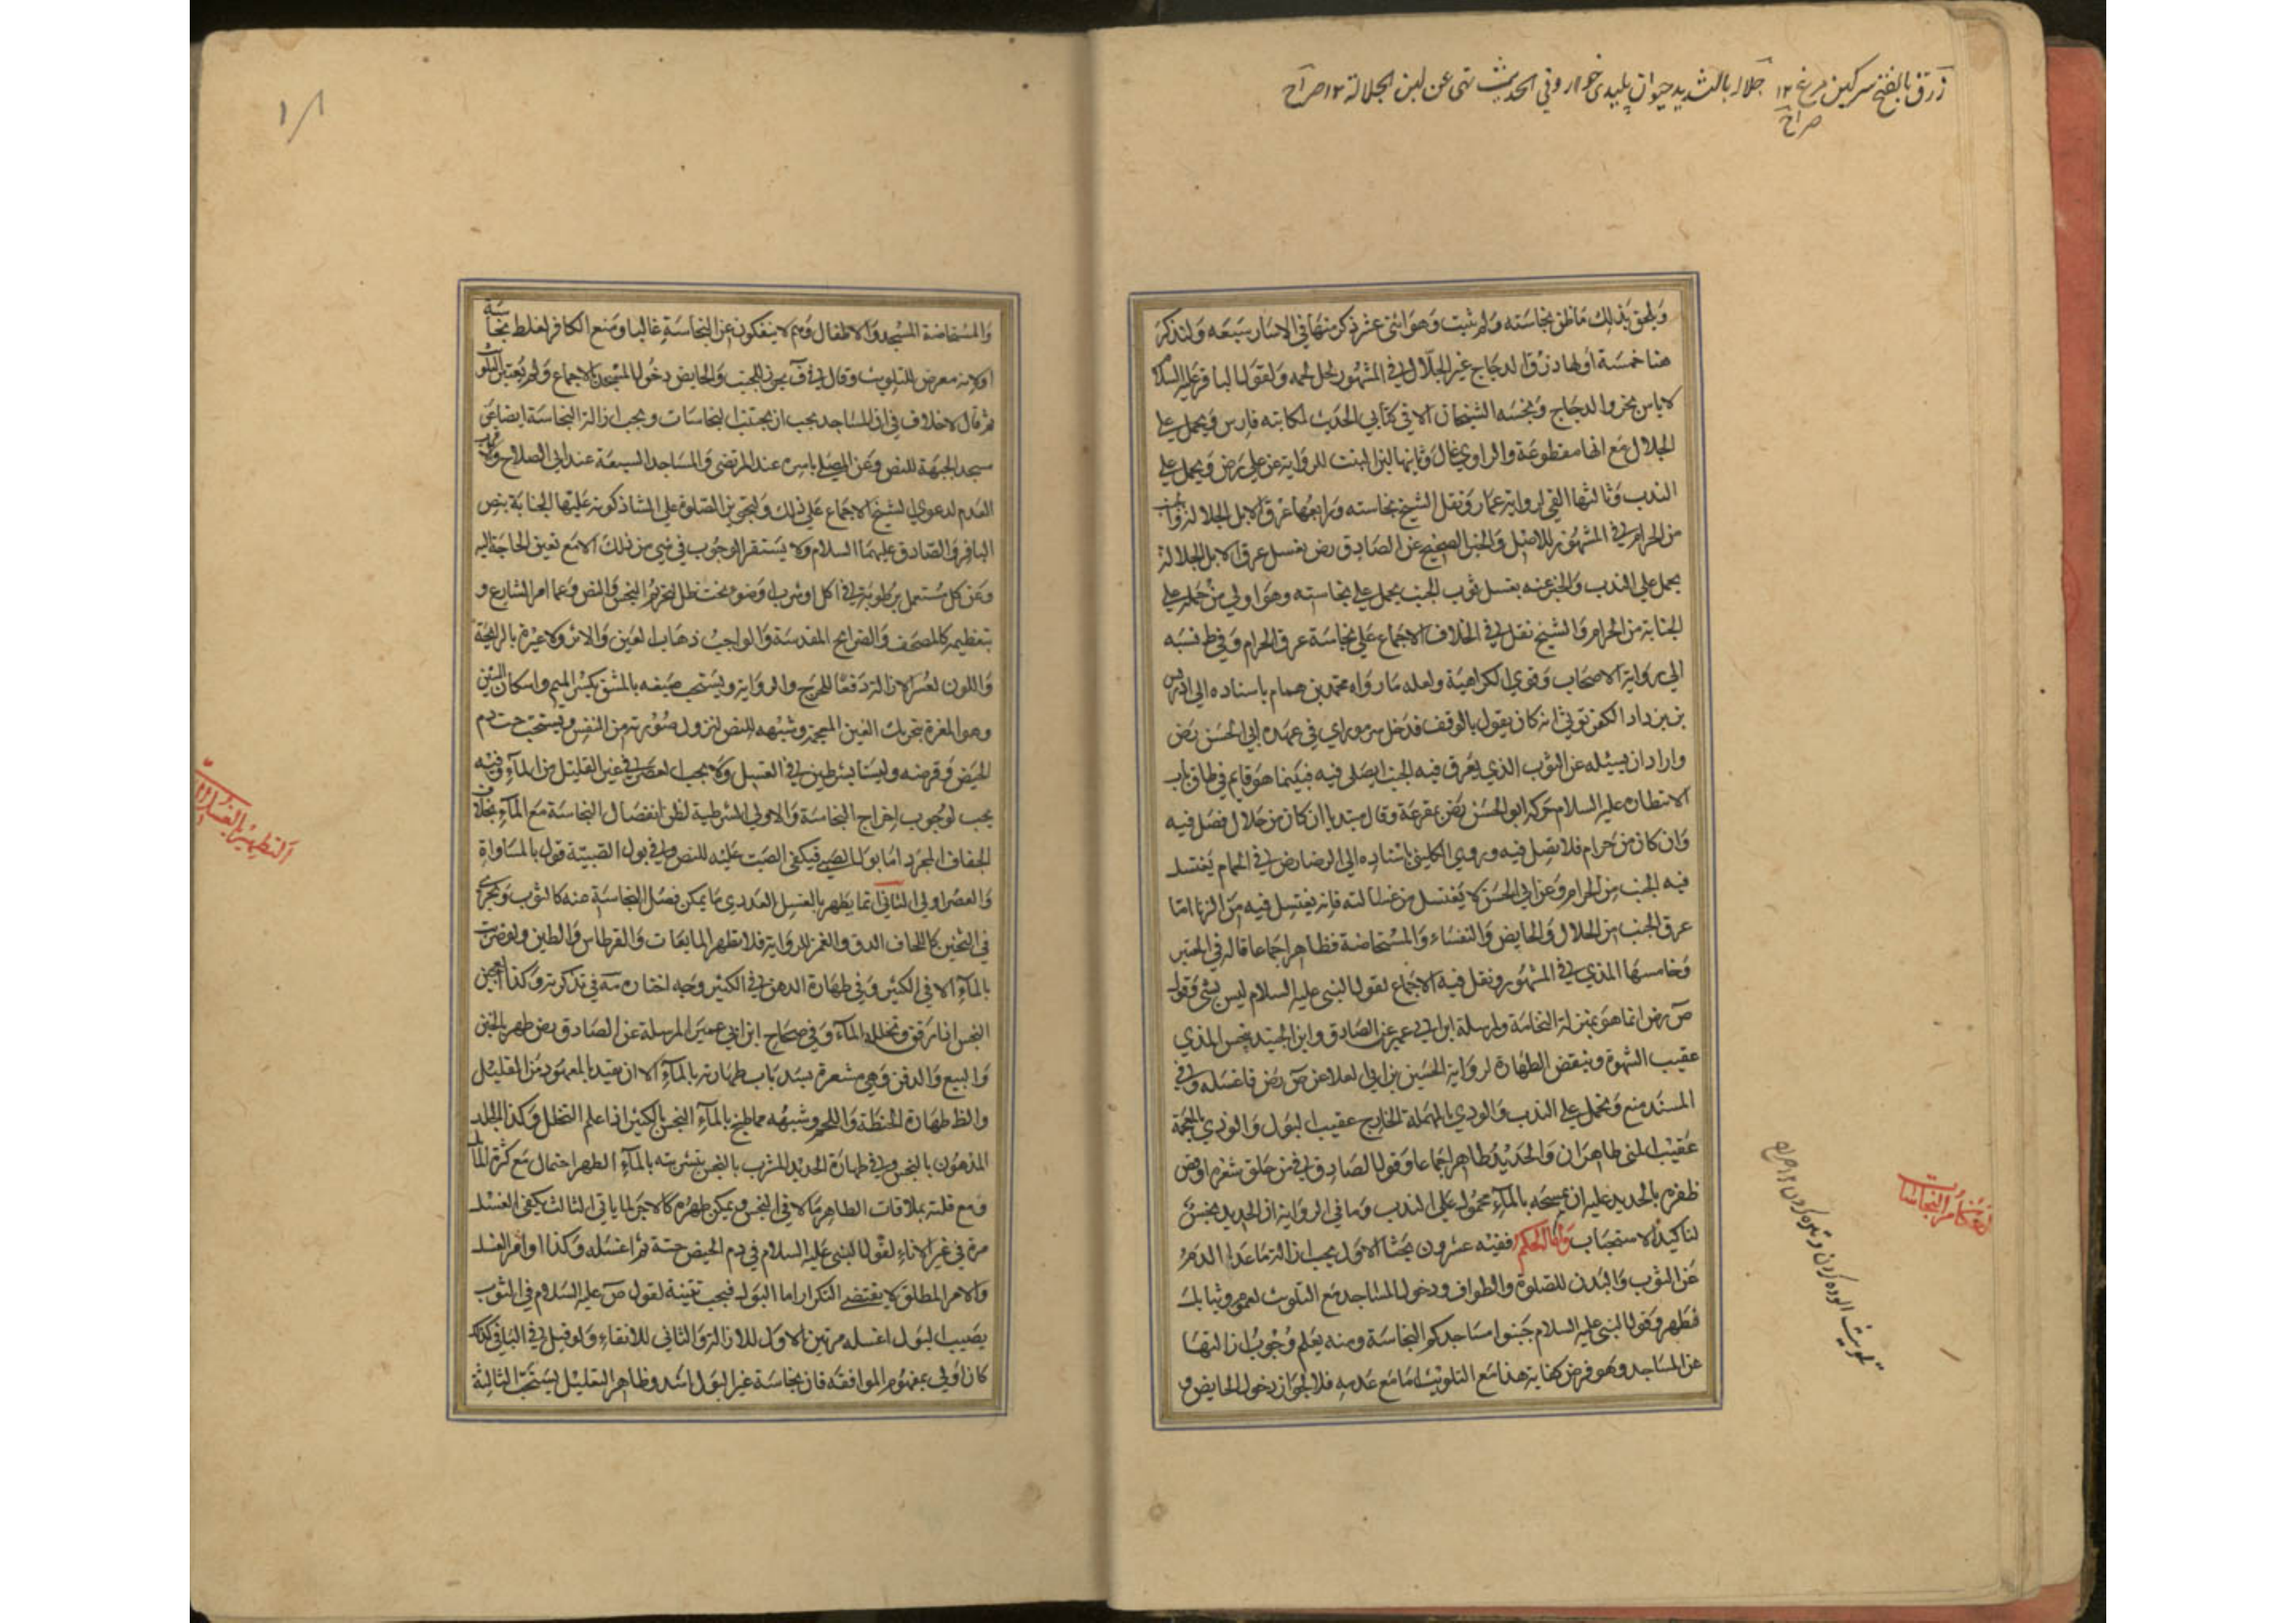 زرق بالفتح سركين مرغ ١٢ جلاله بالتشديد حيوان پليدى خوار وفي الحديث نهى عن لبن الجلالة ١٢ صراح
صراح
ويلحق بذلك ما ظن نجاسته ولم يثبت وهو اثنى عشر ذكر منها في الاسار سبعه ولنذكر
هنا خمسة اولها ذرق الدجاج غير الجلال في المشهور لحل لحمه ولقول الباقر عليه السلام
لا باس بخرو الدجاج ونجسه الشيخان الا في كتابي الحديث لمكاتبه فارس ويحمل علي
الجلال مع انها مقطوعة والراوي غال وثانيها لبن البنت للرواية عن علي رض ويحمل علي
الندب وثالثها القي لرواية عمار ونقل الشيخ نجاسته ورابعها عرق الابل الجلالة و
من الحرام في المشهور للاصل والخبر الصحيح عن الصادق رض بغسل عرق الابل الجلالة
يحمل علي الندب والخبر عنه بغسل ثوب الجنب يحمل علي نجاسته وهو اولي من حمله علي
الجنابة من الحرام والشيخ نقل في الخلاف الاجماع علي نجاسة عرق الحرام وفي ط نسبه
الي رواية الاصحاب وقوي الكراهية ولعله ما رواه محمد بن همام باسناده الي ادريس
بن يزداد الكفرتوثي انه كان يقول بالوقف فدخل سر من راي في عهد ابي الحسن رض
واراد ان يسئله عن الثوب الذي يعرق فيه الجنب ايصلي فيه فبينما هو قايم في طاق باب
لانتظاره عليه السلام حركه ابو الحسن رض بمقرعة وقال مبتديا ان كان من حلال فصل فيه
وان كان من حرام فلا تصل فيه وروي الكليني باسناده الي الرضا رض في الحمام يغتسل
فيه الجنب من الحرام وعن ابي الحسن لا يغتسل من غسالته فانه يغتسل فيه من الزنا اما
عرق الجنب من الحلال والحايض والنفساء والمستحاضة فطاهر اجماعا قاله في المعتبر
وخامسها المذي في المشهور ونقل فيه الاجماع لقول النبي عليه السلام ليس بشي وقول
ص رض انما هو بمنزلة النخاسة ولمرسلة ابن ابي عمير عن الصادق وابن الجنيد بنجس المذي
عقيب الشهوة وينقض الطهارة لرواية الحسين بن ابي العلا عن ص رض فاغسله وفي
المسند منع ويحمل علي الندب والودي بالمهملة الخارج عقيب البول والوذي بالمعجمة
عقيب المني طاهران والحديد طاهر اجماعا وقول الصادق في من حلق شعره او قص
ظفره بالحديد عليه ان يمسحه بالماء محمول علي الندب وما في الرواية ان الحديد نجس
لتاكيد الاستحباب واما الحكم ففيه عشرون بحثا الاول يجب ازالة ما عدا الدم
عن الثوب والبدن للصلوة والطواف ودخول المساجد مع التلويث لعموم وثيابك
فطهر وقول النبي عليه السلام جنبوا مساجدكم النجاسة ومنه يعلم وجوب ازالتها
عن المساجد وهو فرض كفاية هذا مع التلويث اما مع عدمه فلا لجواز دخول الحايض و
احكام النجاسات
تلويث آلوده كردن وتيره كردن ١٢ صراح
١٨
والمستحاضة المسجد والاطفال وهم لا ينفكون عن النجاسة غالبا ومنع الكافر لغلظ نجاسته
او لانه معرض للتلويث وقال في ف يجوز للجنب والحايض دخول المسجد بالاجماع ولم يعتبر التلوث
ثم قال لا خلاف في ان المساجد يجب ان يجتنب النجاسات ويجب ازالة النجاسة ايضا عن
مسجد الجبهة للنص وعن المصلي باسره عند المرتضي والمساجد السبعة عند ابي الصلاح
العدم لدعوي الشيخ الاجماع علي ذلك ولتجويز الصلوة علي الشاذكونه عليها الجنابة بنص
الباقر والصادق عليهما السلام ولا يستقر الوجوب في شي من ذلك الا مع تعين الحاجة اليه
وعن كل مستعمل برطوبة في اكل او شرب او ضوء تحت ظل لتحريم النجس والنص وعما امر الشارع و
بتعظيمه كالمصحف والضرايح المقدسة والواجب ذهاب العين والاثر ولا عبرة بالرايحة
واللون لعسر الازالة دفعا للحرج والرواية ويستحب صبغه بالمشق بكسر الميم واسكان الشين
وهو المغرة بتحريك الغين المعجمة وشبهه للنص لنزول صورته من النفس ويستحب حت دم
الحيض وقرصه وليسا بشرطين في الغسل ولا يجب العصر في غير القليل من الماء وفيه
يجب لوجوب اخراج النجاسة والاولي الشرطية لظن انفصال النجاسة مع الماء بخلاف
الجفاف المجرد اما بول الصبي فيكفي الصب عليه للنص وفي بول الصبية قول بالمساواة
والعصر اولي الثاني انما يطهر بالغسل العددي ما يمكن فصل النجاسة عنه كالثوب ويجزي
في الثخين كاللحاف الدق والغمز للرواية فلا تطهر المايعات والقرطاس والطين ولو ضربت
بالماء الا في الكثير وفي طهارة الدهن في الكثير وجه اختاره مة في تذكرته وكذا العجين
النجس اذا رقق وتخلله الماء وفي صحاح ابن ابي عمير المرسلة عن الصادق رض طهره بالخبز
والبيع والدفن وهي مشعرة بسد باب طهارته بالماء الا ان يقيد بالمعهود من القليل
والظ طهارة الحنطة واللحم وشبهه مما طبخ بالماء النجس بالكثير اذا علم التخلل وكذا الجلد
المدهون بالنجس وفي طهارة الحديد المشرب بالنجس بتشربه بالماء الطهر احتمال مع كثرة الماء
ومع قلته بملاقات الطاهر مالاقي النجس ويمكن طهره كالاجر لما ياتي الثالث يكفي الغسل
مرة في غير الاناء لقول النبي عليه السلام في دم الحيض حتيه ثم اغسله وكذا اوامر الغسل
والامر المطلق لا يقتضي التكرار اما البول فيجب تثنيته لقول ص عليه السلام في الثوب
يصيب البول اغسله مرتين الاول للازالة والثاني للانقاء ولو قيل في الباقي كذلك
كان اولي بمفهوم الموافقه فان نجاسة غير البول اشد وظاهر التعليل يستحب الثالثة
التطهير بالغسل